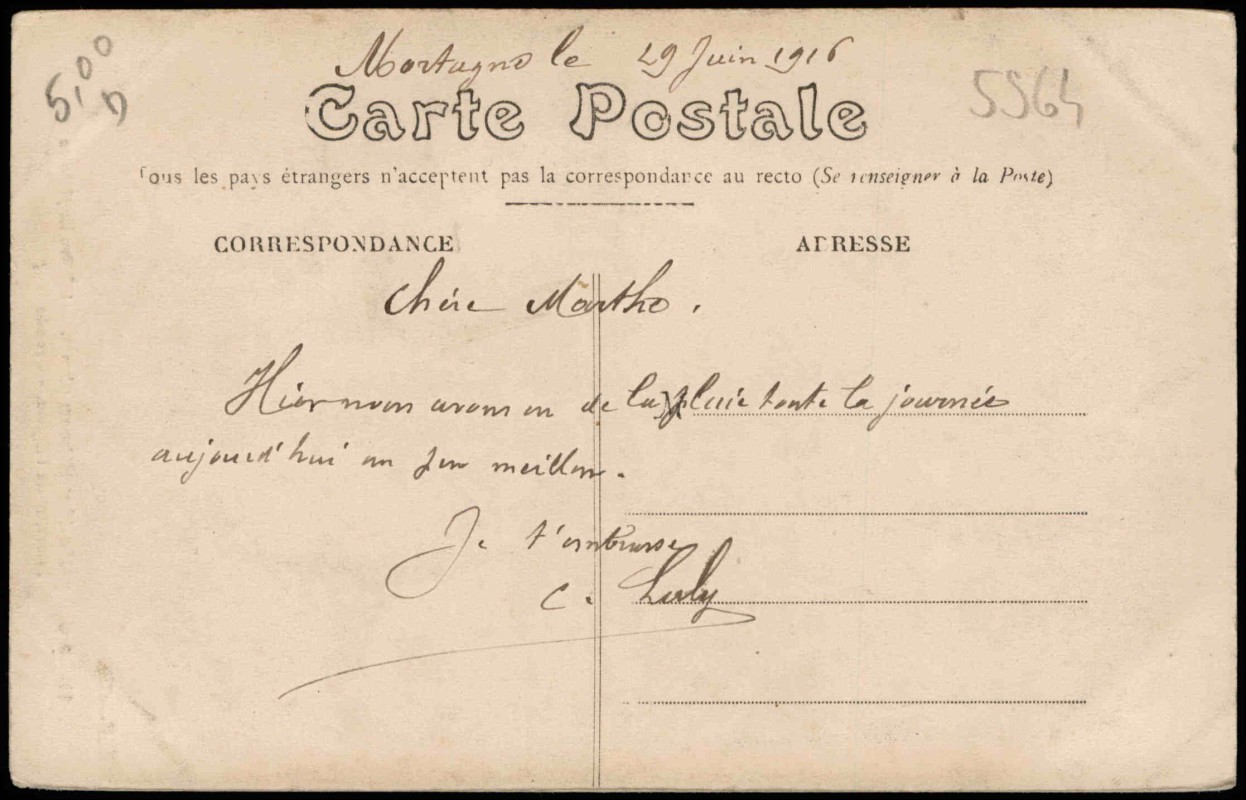 Mortagne le 29 Juin 1916
5,00
5564
Carte Postale
Tous les pays étrangers n'acceptent pas la correspondance au recto (Se renseigner à la Poste)
CORRESPONDANCE
ADRESSE
Chère Marthe.
Hier nous avons eu de la pluie toute la journée
aujourd'hui un peu meilleur.
Je t'embrasse
C.